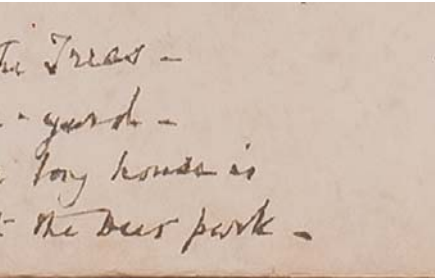 the Trees -
- yard -
long house is
t the Deer park -